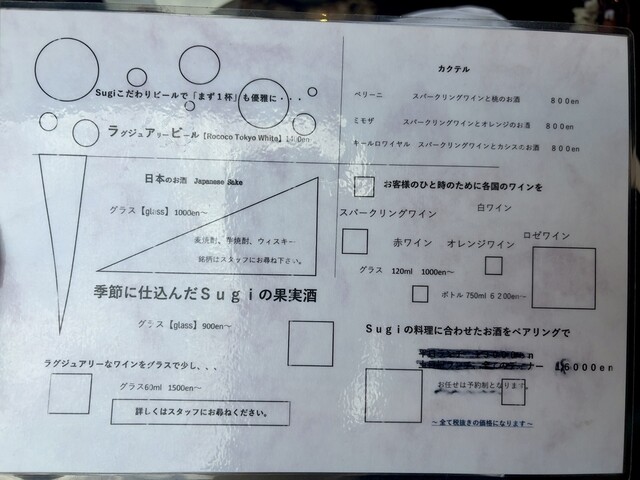 Sugiこだわりビールで「まず1杯」も優雅に・・・
ラグジュアリービール【Rococo Tokyo White】
日本のお酒 Japanese Sake
グラス【glass】1000en～
麦焼酎、芋焼酎、ウィスキー
銘柄はスタッフにお尋ね下さい。
季節に仕込んだSugiの果実酒
グラス【glass】900en～
ラグジュアリーなワインをグラスで少し、、、
グラス60ml 1500en～
詳しくはスタッフにお尋ねください。
カクテル
ベリーニ スパークリングワインと桃のお酒 800en
ミモザ スパークリングワインとオレンジのお酒 800en
キールロワイヤル スパークリングワインとカシスのお酒 800en
お客様のひと時のために各国のワインを
スパークリングワイン 白ワイン
赤ワイン オレンジワイン ロゼワイン
グラス 120ml 1000en～
ボトル750ml 6200en～
Sugiの料理に合わせたお酒をペアリングで
6000en
お任せは予約制となります。
～全て税抜きの価格になります～